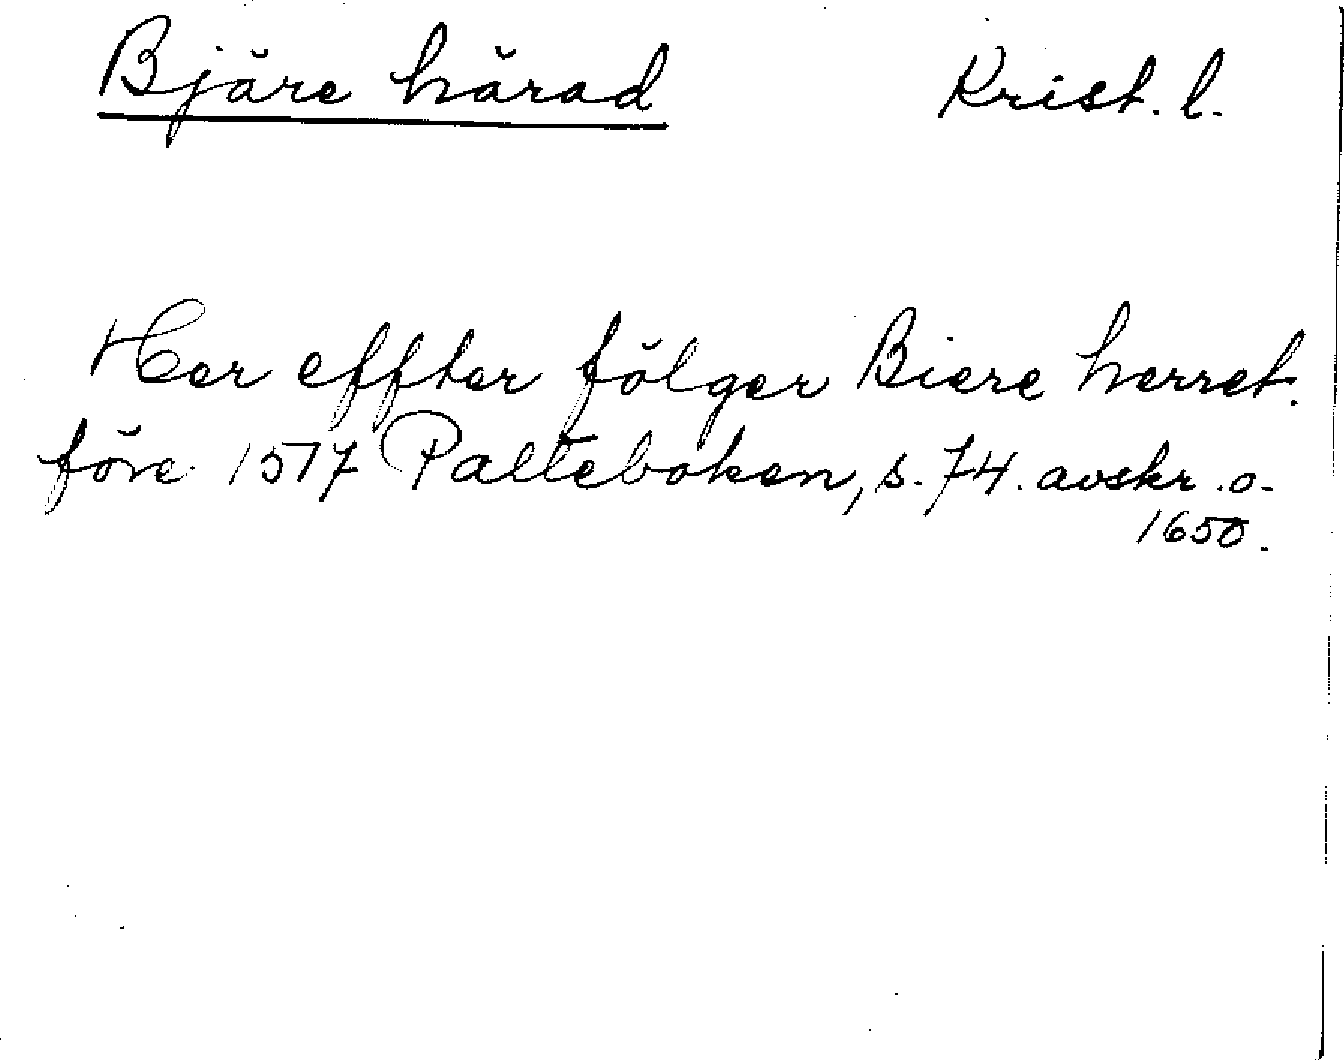 Bjäre härad Krist. l.
Her effter fölger Biere herret.
före 1517 Palteboken, s. 74. avskr. o.
1650.